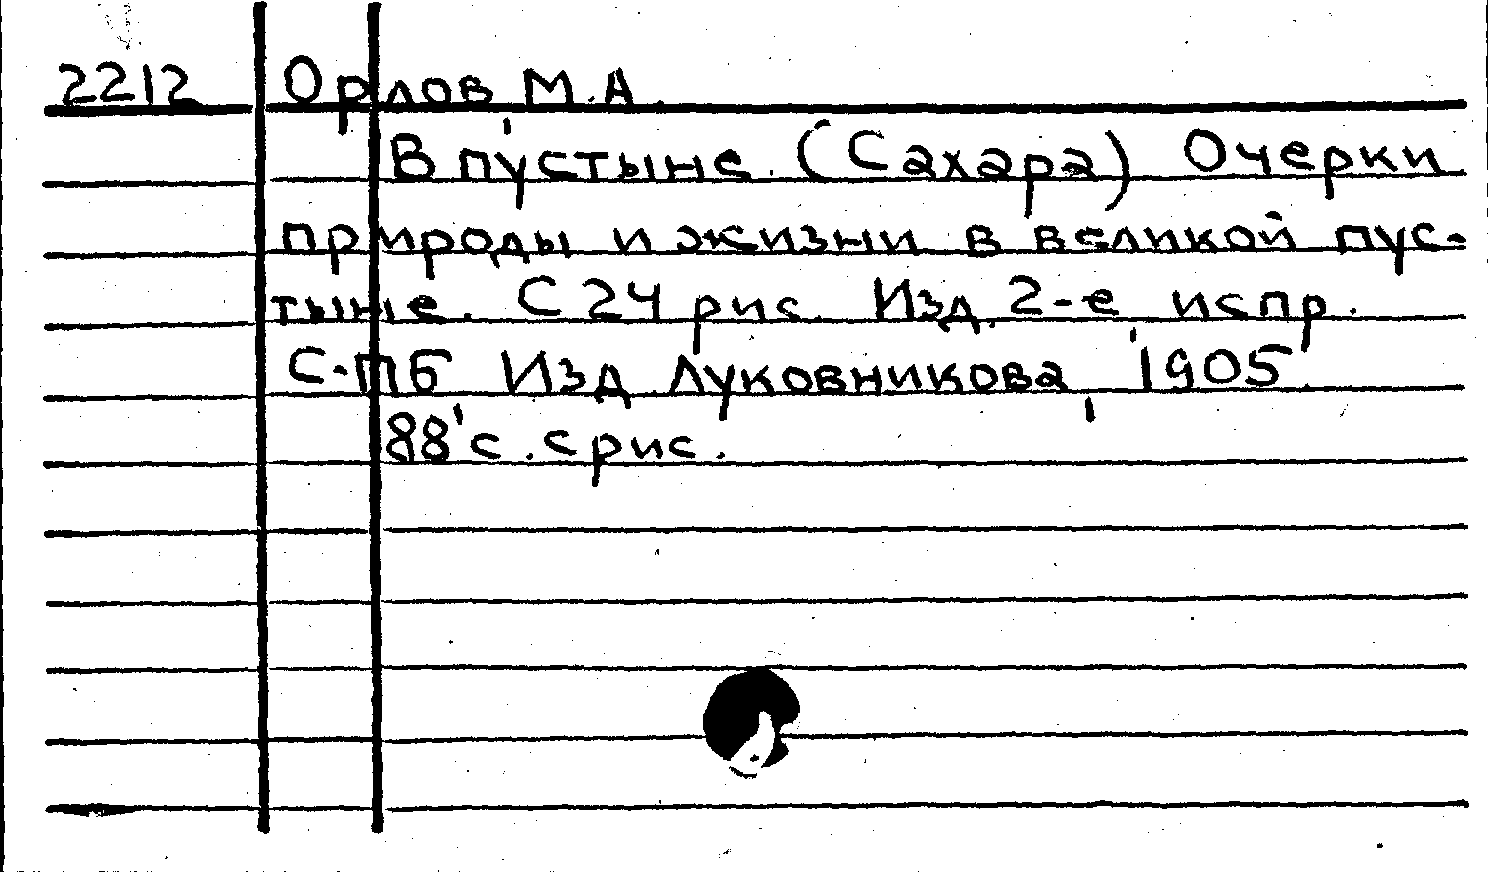 2212 Орлов М.А.
В пустыне. (Сахара) Очерки
природы и жизни в великой пус-
тыне. С 24 рис. Изд. 2-е испр.
С-ПБ Изд. Луковникова, 1905
88 с. с рис.